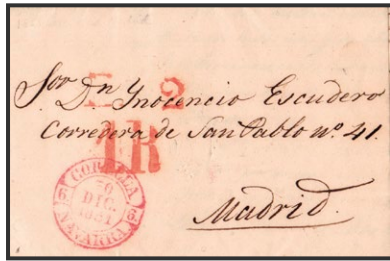 Sor Dn Inocencio Escudero
Corredera de San Pablo nº 41.
E 2
1R
CORELLA
6 30 6
DIC.
1851
NAVARRA
Madrid.